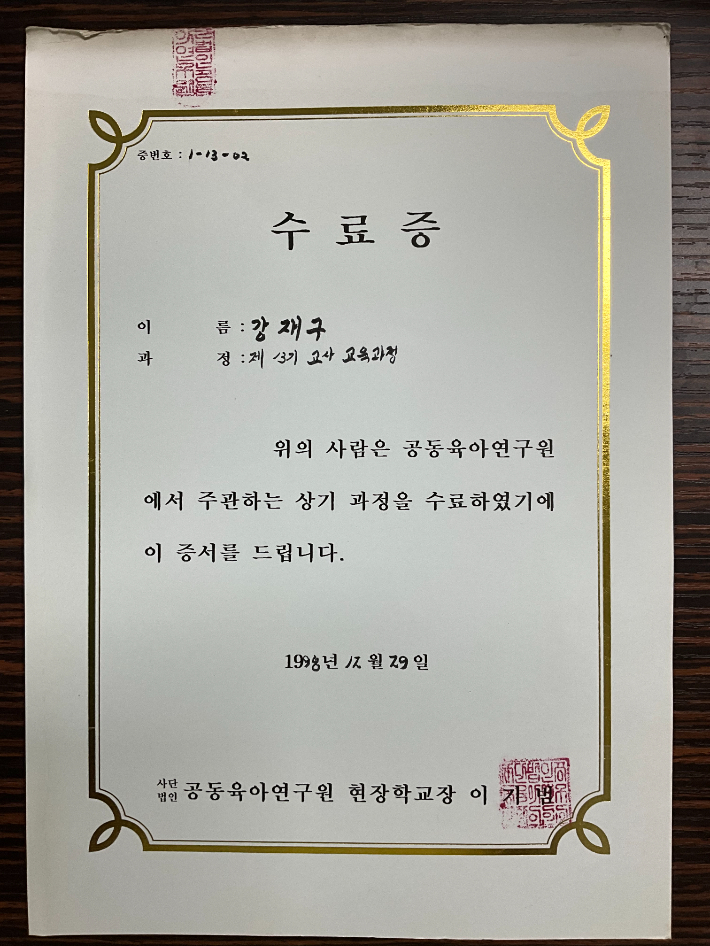 증번호 : 1-13-02
수 료 증
이 름 : 강 재 구
과 정 : 제 13기 교사 교육과정
위의 사람은 공동육아연구원
에서 주관하는 상기 과정을 수료하였기에
이 증서를 드립니다.
1998년 12월 29일
사단법인 공동육아연구원 현장학교장 이 기 범